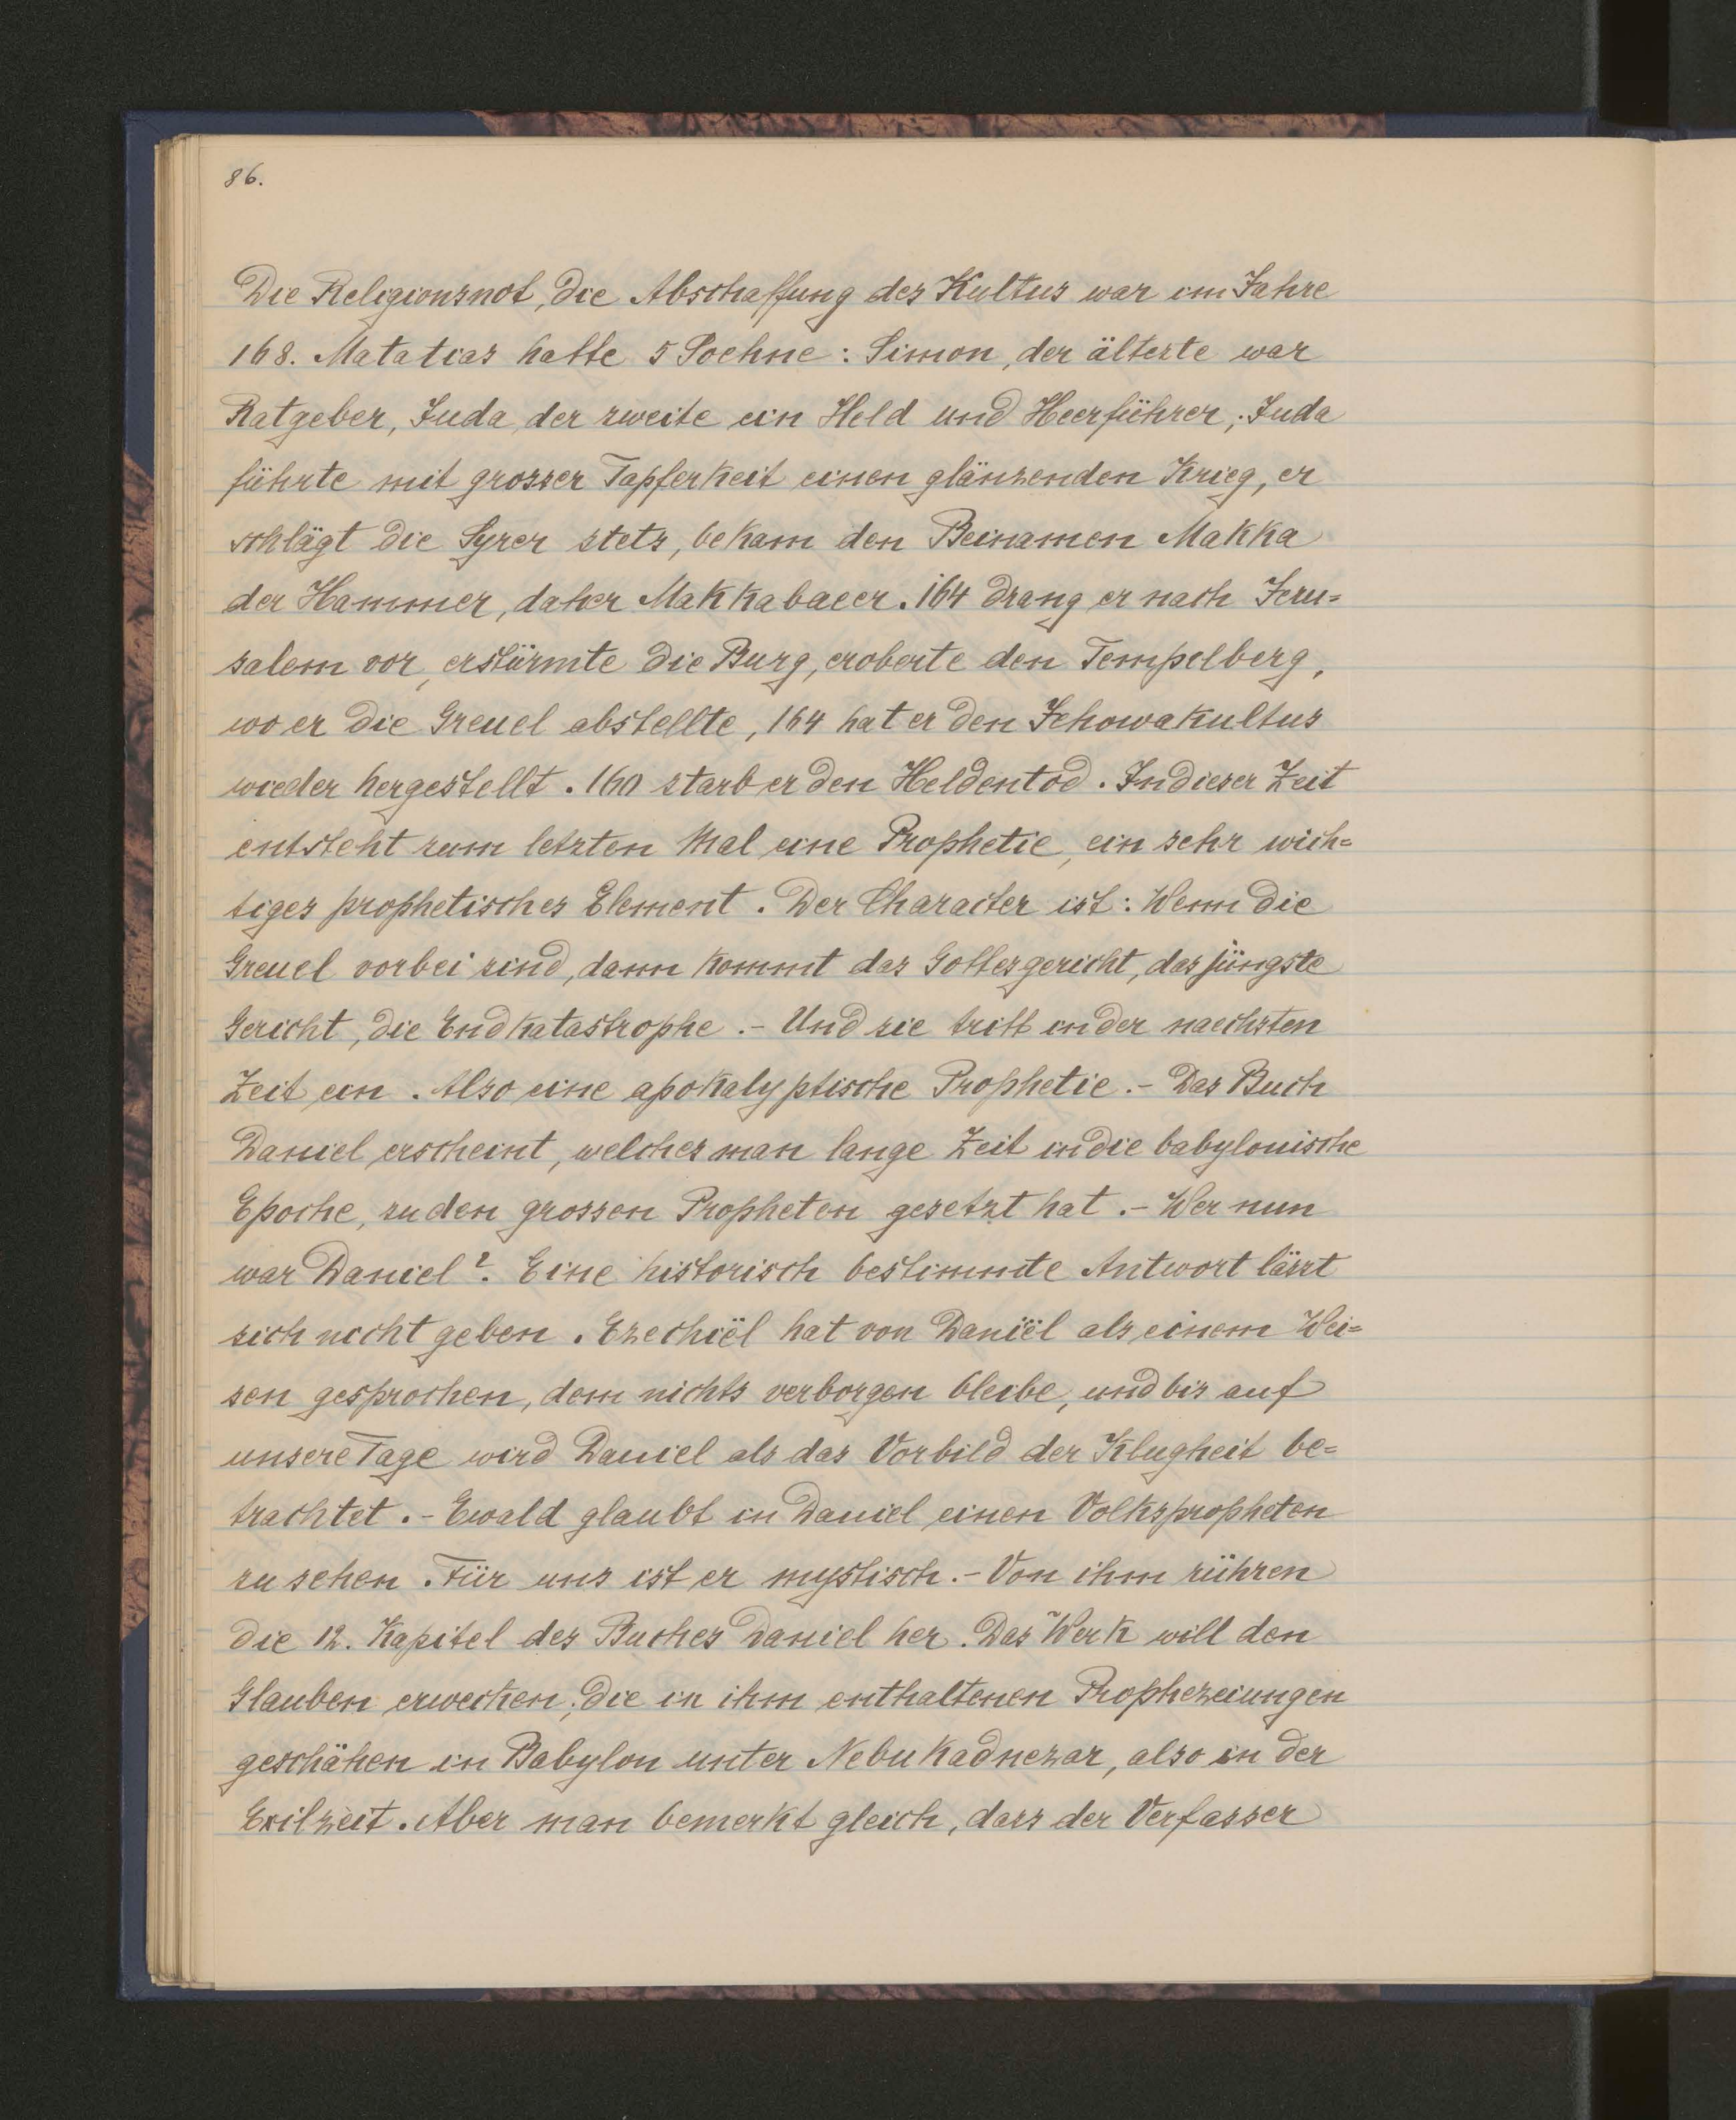 86.
Die Religionsnot, die Abschaffung des Kultus war im Jahre
168. Matatias hatte 5 Soehne: Simon, der älteste war
Ratgeber, Juda der zweite ein Held und Heerführer; Juda
führte mit grosser Tapferkeit einen glänzenden Krieg, er
schlägt die Syrer stets, bekam den Beinamen Makka
der Hammer, daher Makkabaeer. 164 drang er nach Jeru=
salem vor, erstürmte die Burg, eroberte den Tempelberg,
wo er die Greuel abstellte, 164 hat er den Jehowakultus
wieder hergestellt. 160 starb er den Heldentod. In dieser Zeit
entsteht zum letzten Mal eine Prophetie, ein sehr wich=
tiges prophetisches Element. Der Character ist: Wenn die
Greuel vorbei sind, dann kommt das Gottesgericht, das jüngste
Gericht, die Endkatastrophe.- Und sie tritt in der naechsten
Zeit ein. Also eine apokalyptische Prophetie.- Das Buch
Daniel erscheint, welches man lange Zeit in die babylonische
Epoche, zu den grossen Propheten gesetzt hat.- Wer nun
war Daniel?. Eine historisch bestimmte Antwort lässt
sich nicht geben. Ezechiël hat von Daniël als einem Wei=
sen gesprochen, dem nichts verborgen bleibe, und bis auf
unsere Tage wird Daniel als das Vorbild der Klugheit be=
trachtet.- Ewald glaubt in Daniel einen Volkspropheten
zu sehen. Für uns ist er mystisch.- Von ihm rühren
die 12. Kapitel des Buches Daniel her. Das Werk will den
Glauben erwecken; die in ihm enthaltenen Prophezeiungen
geschähen in Babylon unter Nebukadnezar, also in der
Exilzeit. Aber man bemerkt gleich, dass der Verfasser